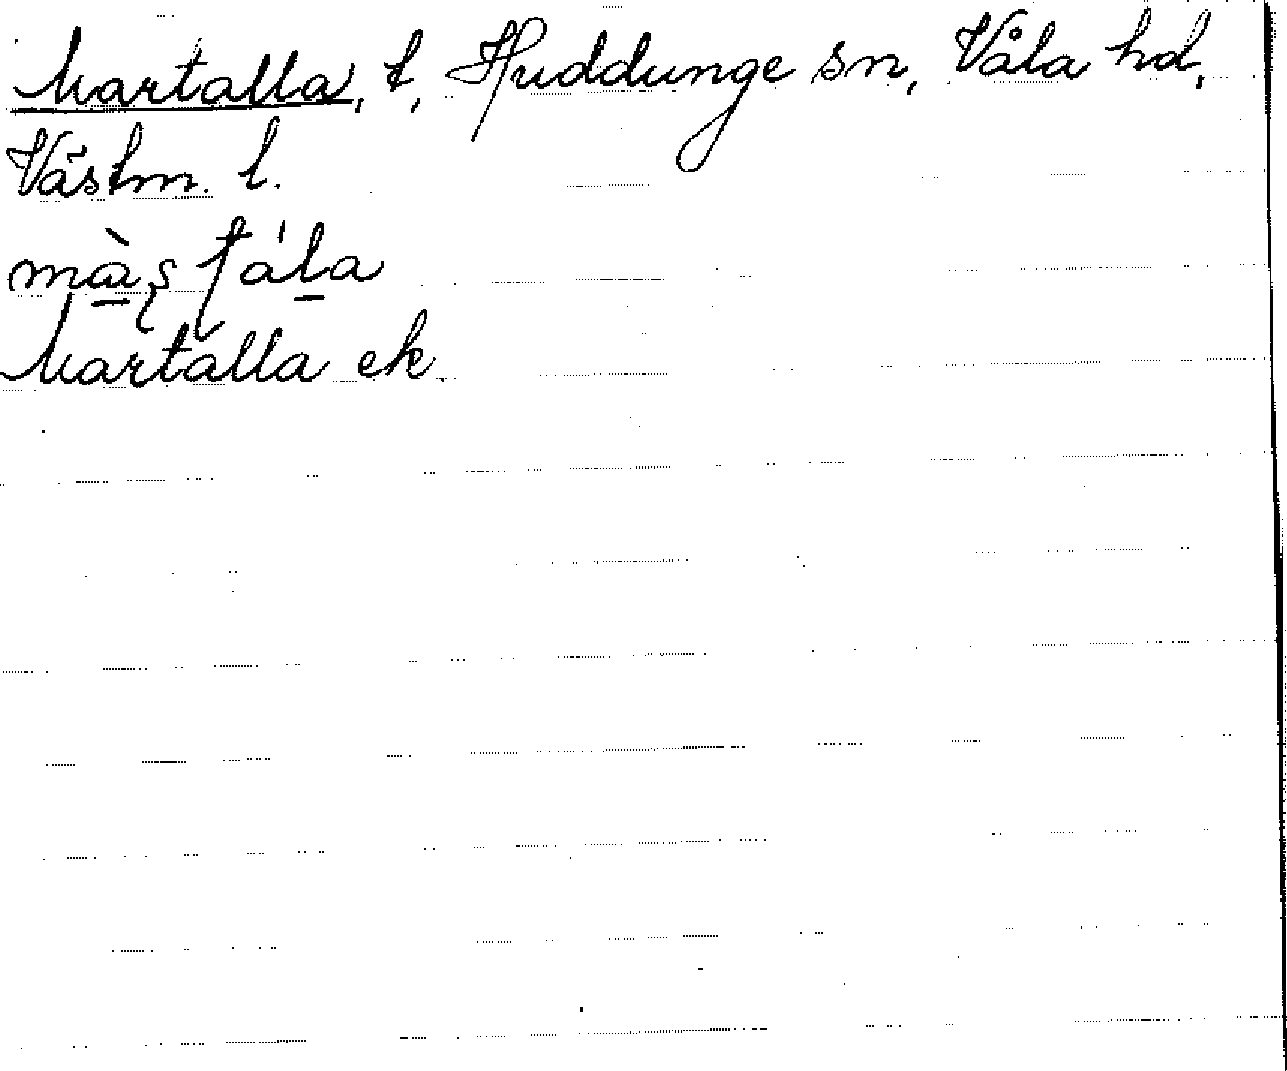 Martalla, t, Huddunge sn, Våla hd,
Västm. l.
Martalla ek.